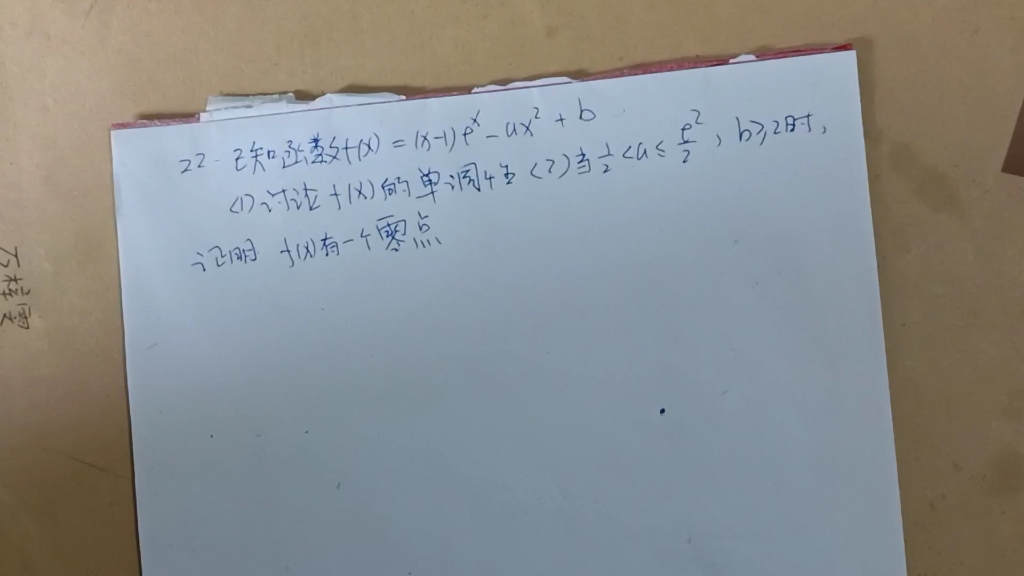 22. 已知函数f(x)=(x-1)e^x-ax²+b
(1)讨论f(x)的单调性 (2)当½<a≤e²/2, b≥2时,
证明 f(x)有一个零点